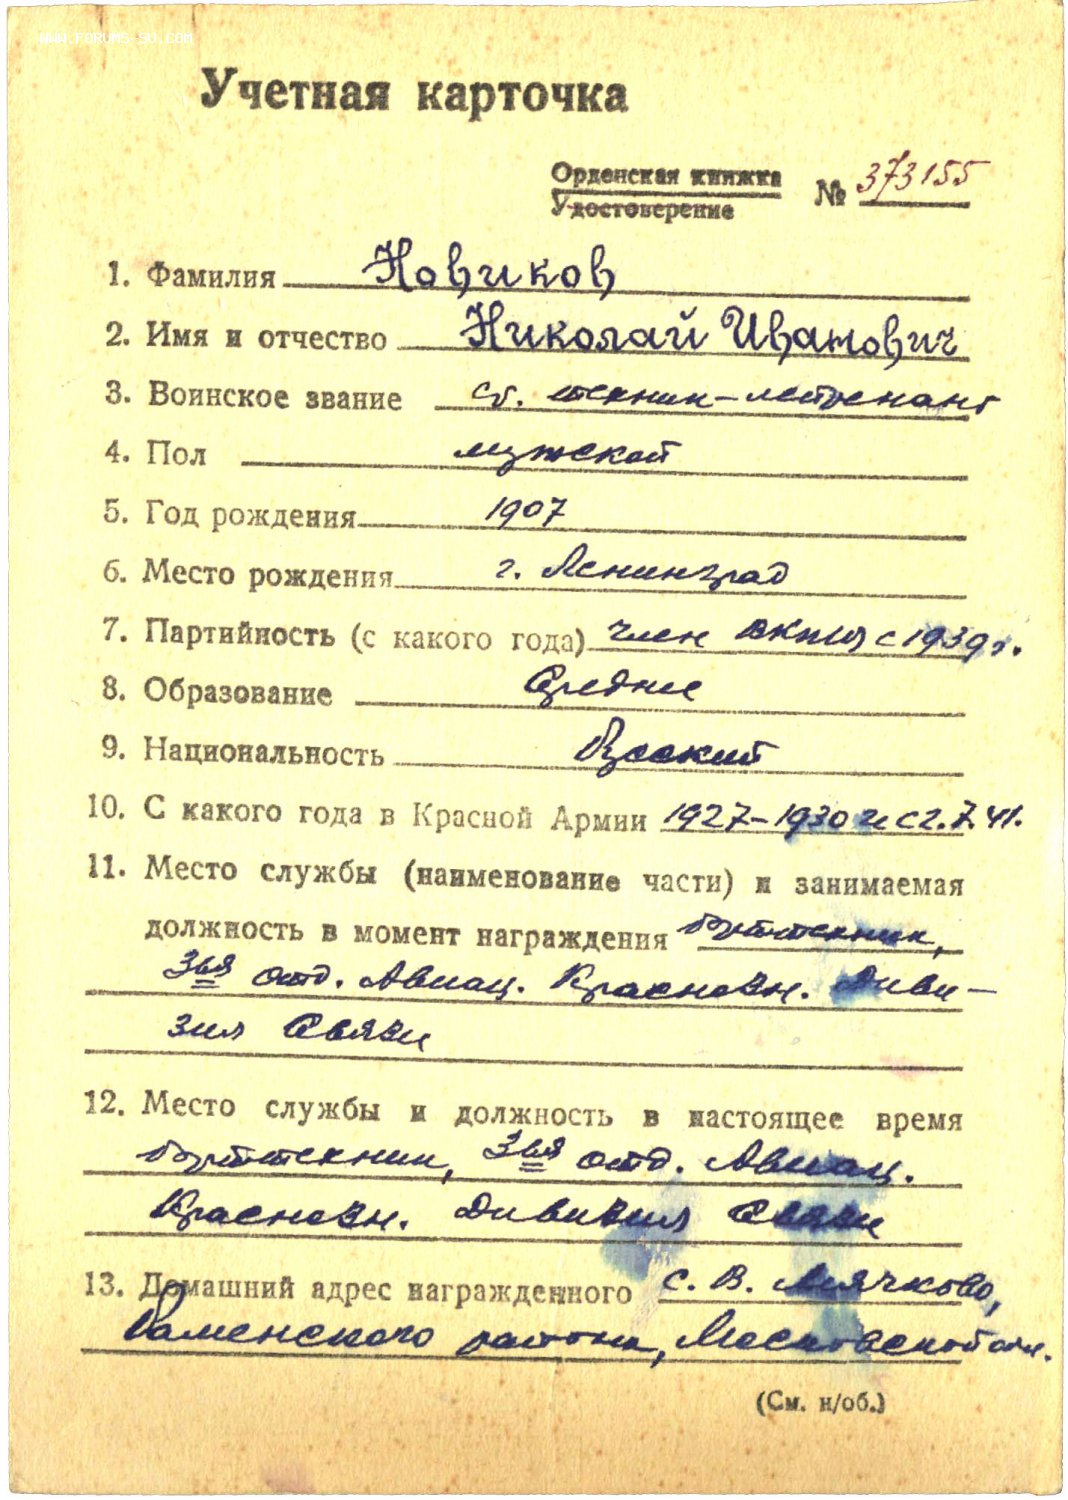 WWW.FORUMS-SU.COM
Учетная карточка
Орденская книжка № 373155
Удостоверение
1. Фамилия Новиков
2. Имя и отчество Николай Иванович
3. Воинское звание ст. техник-лейтенант
4. Пол мужской
5. Год рождения 1907
6. Место рождения г. Ленинград
7. Партийность (с какого года) член ВКП(б) с 1939 г.
8. Образование Среднее
9. Национальность Русский
10. С какого года в Красной Армии 1927-1930 и с 2.7.41.
11. Место службы (наименование части) и занимаемая
должность в момент награждения борттехник,
3ья отд. Авиац. Краснозн. Диви-
зия Связи
12. Место службы и должность в настоящее время
борттехник, 3ья отд. Авиац.
Краснозн. Дивизия Связи
13. Домашний адрес награжденного с. В. Мячково,
Раменского района, Московской обл.
(См. н/об.)